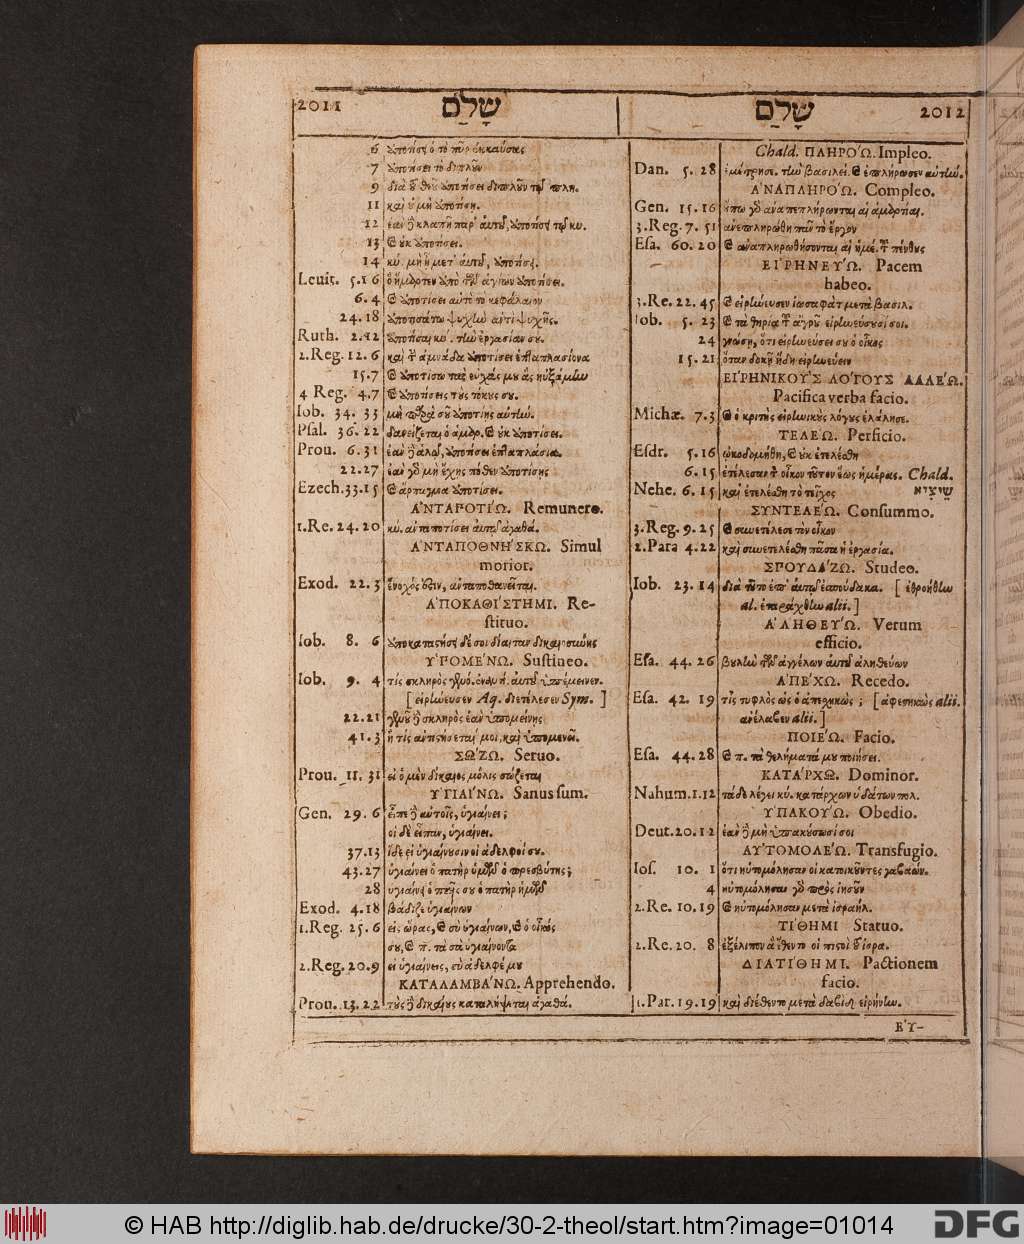 2011 שָׁלַם
6 ἀποτίσει ὁ τὸ πῦρ ἐκκαύσας
7 ἀποτίσει τὸ διπλοῦν
9 διὰ τοῦ θεοῦ ἀποτίσει διπλοῦν τῷ πλη.
11 καὶ οὐ μὴ ἀποτίσῃ.
12 ἐὰν δὲ κλαπῇ παρ' αὐτοῦ, ἀποτίσει τῷ κυ.
13 καὶ οὐκ ἀποτίσει.
14 κύ. μὴ ᾖ μετ' αὐτοῦ, ἀποτίσει.
Leuit. 5.16 ὃ ἥμαρτεν ἀπὸ τῶν ἁγίων ἀποτίσει.
6.4 καὶ ἀποτίσει αὐτὸ τὸ κεφάλαιον
24.18 ἀποτισάτω ψυχὴν ἀντὶ ψυχῆς.
Ruth. 2.12 ἀποτίσαι κύ. τὴν ἐργασίαν σου.
2.Reg. 12.6 καὶ τὴν ἀμνάδα ἀποτίσει ἑπταπλασίονα
15.7 καὶ ἀποτίσω τὰς εὐχάς μου ἃς ηὐξάμην
4 Reg. 4.7 καὶ ἀποτίσεις τοὺς τόκους σου.
Iob. 34. 33 μὴ παρὰ σοῦ ἀποτίσει αὐτήν.
Psal. 36.22 δανείζεται ὁ ἁμαρ. καὶ οὐκ ἀποτίσει.
Prou. 6.31 ἐὰν δὲ ἁλῷ, ἀποτίσει ἑπταπλάσια.
22.27 ἐὰν γὰρ μὴ ἔχῃς πόθεν ἀποτίσῃς
Ezech. 33.15 καὶ ἅρπαγμα ἀποτίσει.
ἈΝΤΑΠΟΤΙΏ. Remunero.
1.Re. 24.20 κύ. ἀνταποτίσει αὐτῷ ἀγαθά.
ἈΝΤΑΠΟΘΝΗΊΣΚΩ. Simul
morior.
Exod. 22.3 ἔνοχός ἐστιν, ἀνταποθανεῖται.
ἈΠΟΚΑΘΊΣΤΗΜΙ. Re-
stituo.
Iob. 8. 6 ἀποκαταστήσει δέ σοι δίαιταν δικαιοσύνης
ὙΠΟΜΕΝΏ. Sustineo.
Iob. 9. 4 τίς σκληρὸς γενό. ἐναντί. αὐτοῦ ὑπέμεινεν.
[ εἰρήνευσεν Aq. διετέλεσεν Sym. ]
22.21 γενοῦ δὴ σκληρὸς ἐὰν ὑπομείνῃς
41.3 ἢ τίς ἀντιστήσεταί μοι, καὶ ὑπομενεῖ.
ΣΏΖΩ. Seruo.
Prou. 11. 31 εἰ ὁ μὲν δίκαιος μόλις σώζεται
ὙΓΙΑΊΝΩ. Sanus sum.
Gen. 29. 6 εἶπε δὲ αὐτοῖς, ὑγιαίνει;
οἱ δὲ εἶπαν, ὑγιαίνει.
37.13 ἴδε εἰ ὑγιαίνουσιν οἱ ἀδελφοί σου.
43.27 ὑγιαίνει ὁ πατὴρ ὑμῶν ὁ πρεσβύτης;
28 ὑγιαίνει ὁ παῖς σου ὁ πατὴρ ἡμῶν
Exod. 4.18 βάδιζε ὑγιαίνων
1.Reg. 25.6 εἰς ὥρας, καὶ σὺ ὑγιαίνων, καὶ ὁ οἶκός
σου, καὶ π. τὰ σὰ ὑγιαίνοντα
2.Reg. 20.9 εἰ ὑγιαίνεις, σὺ ἀδελφέ μου
ΚΑΤΑΛΑΜΒΆΝΩ. Apprehendo.
Prou. 13.22 τοὺς δὲ δικαίους καταλήψεται ἀγαθά.
שָׁלַם 2012
Chald. ΠΛΗΡΌΩ. Impleo.
Dan. 5. 28 ἐμέτρησε. τὴν βασιλεί. καὶ ἐπλήρωσεν αὐτήν.
ἈΝΑΠΛΗΡΌΩ. Compleo.
Gen. 15.16 οὔπω γὰρ ἀναπεπλήρωνται αἱ ἁμαρτίαι.
3.Reg. 7. 51 ἀνεπληρώθη πᾶν τὸ ἔργον
Esa. 60.20 καὶ ἀναπληρωθήσονται αἱ ἡμέ. τοῦ πένθους
ΕἸΡΗΝΕΎΩ. Pacem
habeo.
3.Re. 22. 45 καὶ εἰρήνευσεν ἰωσαφὰτ μετὰ βασιλ.
Iob. 5. 23 καὶ τὰ θηρία τοῦ ἀγροῦ εἰρηνεύσουσί σοι.
24 γνώσῃ, ὅτι εἰρηνεύσει σου ὁ οἶκος
15.21 ὅταν δοκῇ ἤδη εἰρηνεύειν
ΕἸΡΗΝΙΚΟΥῪΣ ΛΌΓΟΥΣ ΛΑΛΈΩ.
Pacifica verba facio.
Michæ. 7.3 καὶ ὁ κριτὴς εἰρηνικοὺς λόγους ἐλάλησε.
ΤΕΛΈΩ. Perficio.
Esdr. 5.16 ᾠκοδομήθη, καὶ οὐκ ἐτελέσθη
6.15 ἐτέλεσαν τὸν οἶκον τοῦτον ἕως ἡμέρας. Chald.
Nehe. 6.15 καὶ ἐτελέσθη τὸ τεῖχος שֵׁיצִיא
ΣΥΝΤΕΛΈΩ. Consummo.
3.Reg. 9.25 καὶ συνετέλεσε τὸν οἶκον
2.Para 4.22 καὶ συνετελέσθη πᾶσα ἡ ἐργασία.
ΣΠΟΥΔΆΖΩ. Studeo.
Iob. 23.14 διὰ τοῦτο ἐπ' αὐτῷ ἐσπούδακα. [ ἐθροήθην
al. ἐταράχθην alii. ]
ἈΛΗΘΕΎΩ. Verum
efficio.
Esa. 44.26 βουλὴν τῶν ἀγγέλων αὐτοῦ ἀληθεύων
ἈΠΈΧΩ. Recedo.
Esa. 42. 19 τίς τυφλὸς ὡς ὁ ἀπεχηκὼς; [ ἀφεστηκὼς alii.
ἀνέλαβεν alii. ]
ΠΟΙΈΩ. Facio.
Esa. 44.28 καὶ π. τὰ θελήματά μου ποιήσει.
ΚΑΤΆΡΧΩ. Dominor.
Nahum. 1.12 τάδε λέγει κύ. κατάρχων ὑδάτων πολ.
ὙΠΑΚΟΎΩ. Obedio.
Deut. 20.12 ἐὰν δὲ μὴ ὑπακούσωσί σοι
ΑὙΤΟΜΟΛΈΩ. Transfugio.
Ios. 10. 1 ὅτι ηὐτομόλησαν οἱ κατοικοῦντες γαβαών.
4 ηὐτομόλησαν γὰρ πρὸς ἰησοῦν
2.Re. 10.19 καὶ ηὐτομόλησαν μετὰ ἰσραήλ.
ΤΊΘΗΜΙ Statuo.
2.Re. 20. 8 ἐξέλιπον ἃ ἔθεντο οἱ πιστοὶ τοῦ ἰσρα.
ΔΙΑΤΊΘΗΜΙ. Pactionem
facio.
1.Par. 19.19 καὶ διέθεντο μετὰ δαβὶδ εἰρήνην.
ΕΥ̓-
© HAB http://diglib.hab.de/drucke/30-2-theol/start.htm?image=01014
DFG